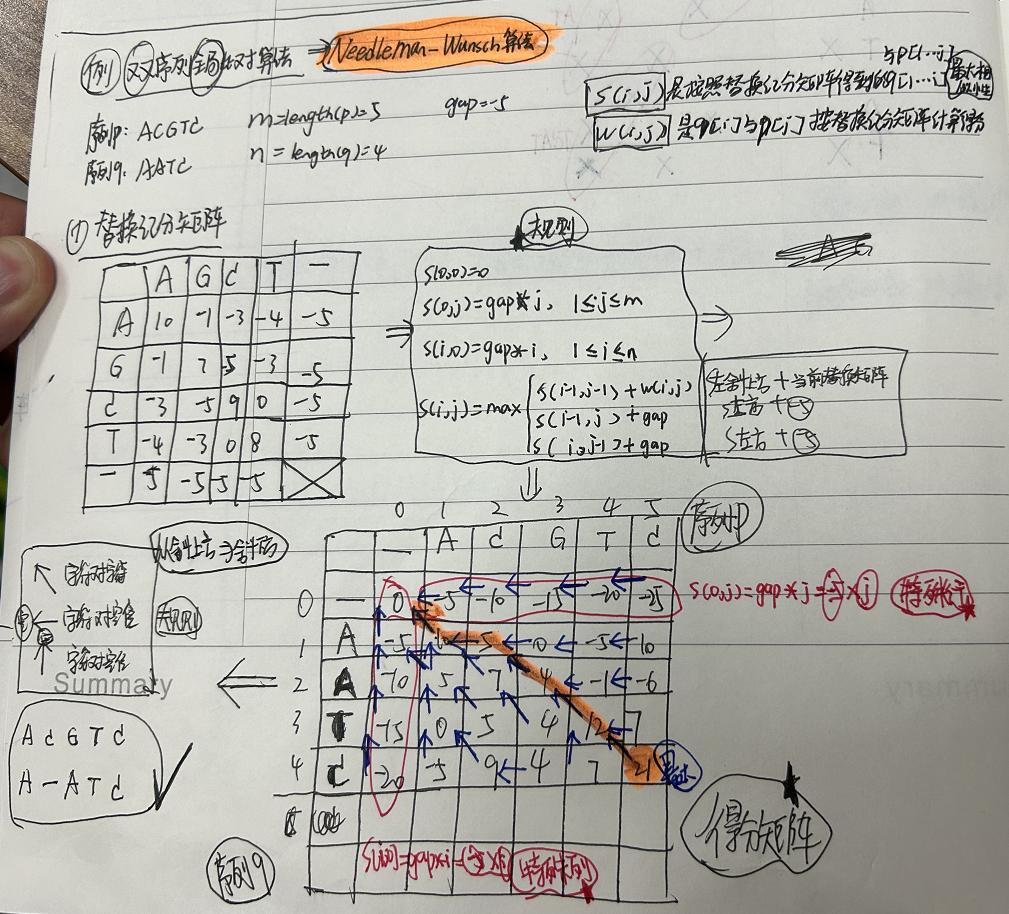 例 双序列全局比对算法 ⇒ Needleman-Wunsch算法
与p[1…j]
S(i,j) 是按照替换记分矩阵得到的q[1…i] 最大相似性
W(i,j) 是q[i]与p[j]按替换记分矩阵计算得分
序列p: ACGTC m=length(p)=5 gap=-5
序列q: AATC n=length(q)=4
(1) 替换记分矩阵
A G C T —
A 10 -1 -3 -4 -5
G -1 7 -5 -3 -5
C -3 -5 9 0 -5
T -4 -3 0 8 -5
— -5 -5 -5 -5
规则
S(0,0)=0
S(0,j)=gap*j, 1≤j≤m
S(i,0)=gap*i, 1≤i≤n
S(i,j)=max
S(i-1,j-1)+w(i,j)
S(i-1,j)+gap
S(i,j-1)+gap
左斜上方+当前替换矩阵
S左方+(-5)
S左方+(-5)
0 1 2 3 4 5 序列p
— A C G T C
0 — 0 -5 -10 -15 -20 -25
1 A -5 10 5 0 -5 -10
2 A -10 5 7 4 -1 -6
3 T -15 0 5 4 12 7
4 C -20 -5 9 4 7 21
S(0,j)=gap*j=(-5)×j 特殊行
S(i,0)=gap*i=(-5)×i 特殊列
序列q
得分矩阵
从斜上方⇒斜码
↖ 字符对字符
← 字符对空位
↑ 字符对空位
规则
Summary
A C G T C
A — A T C